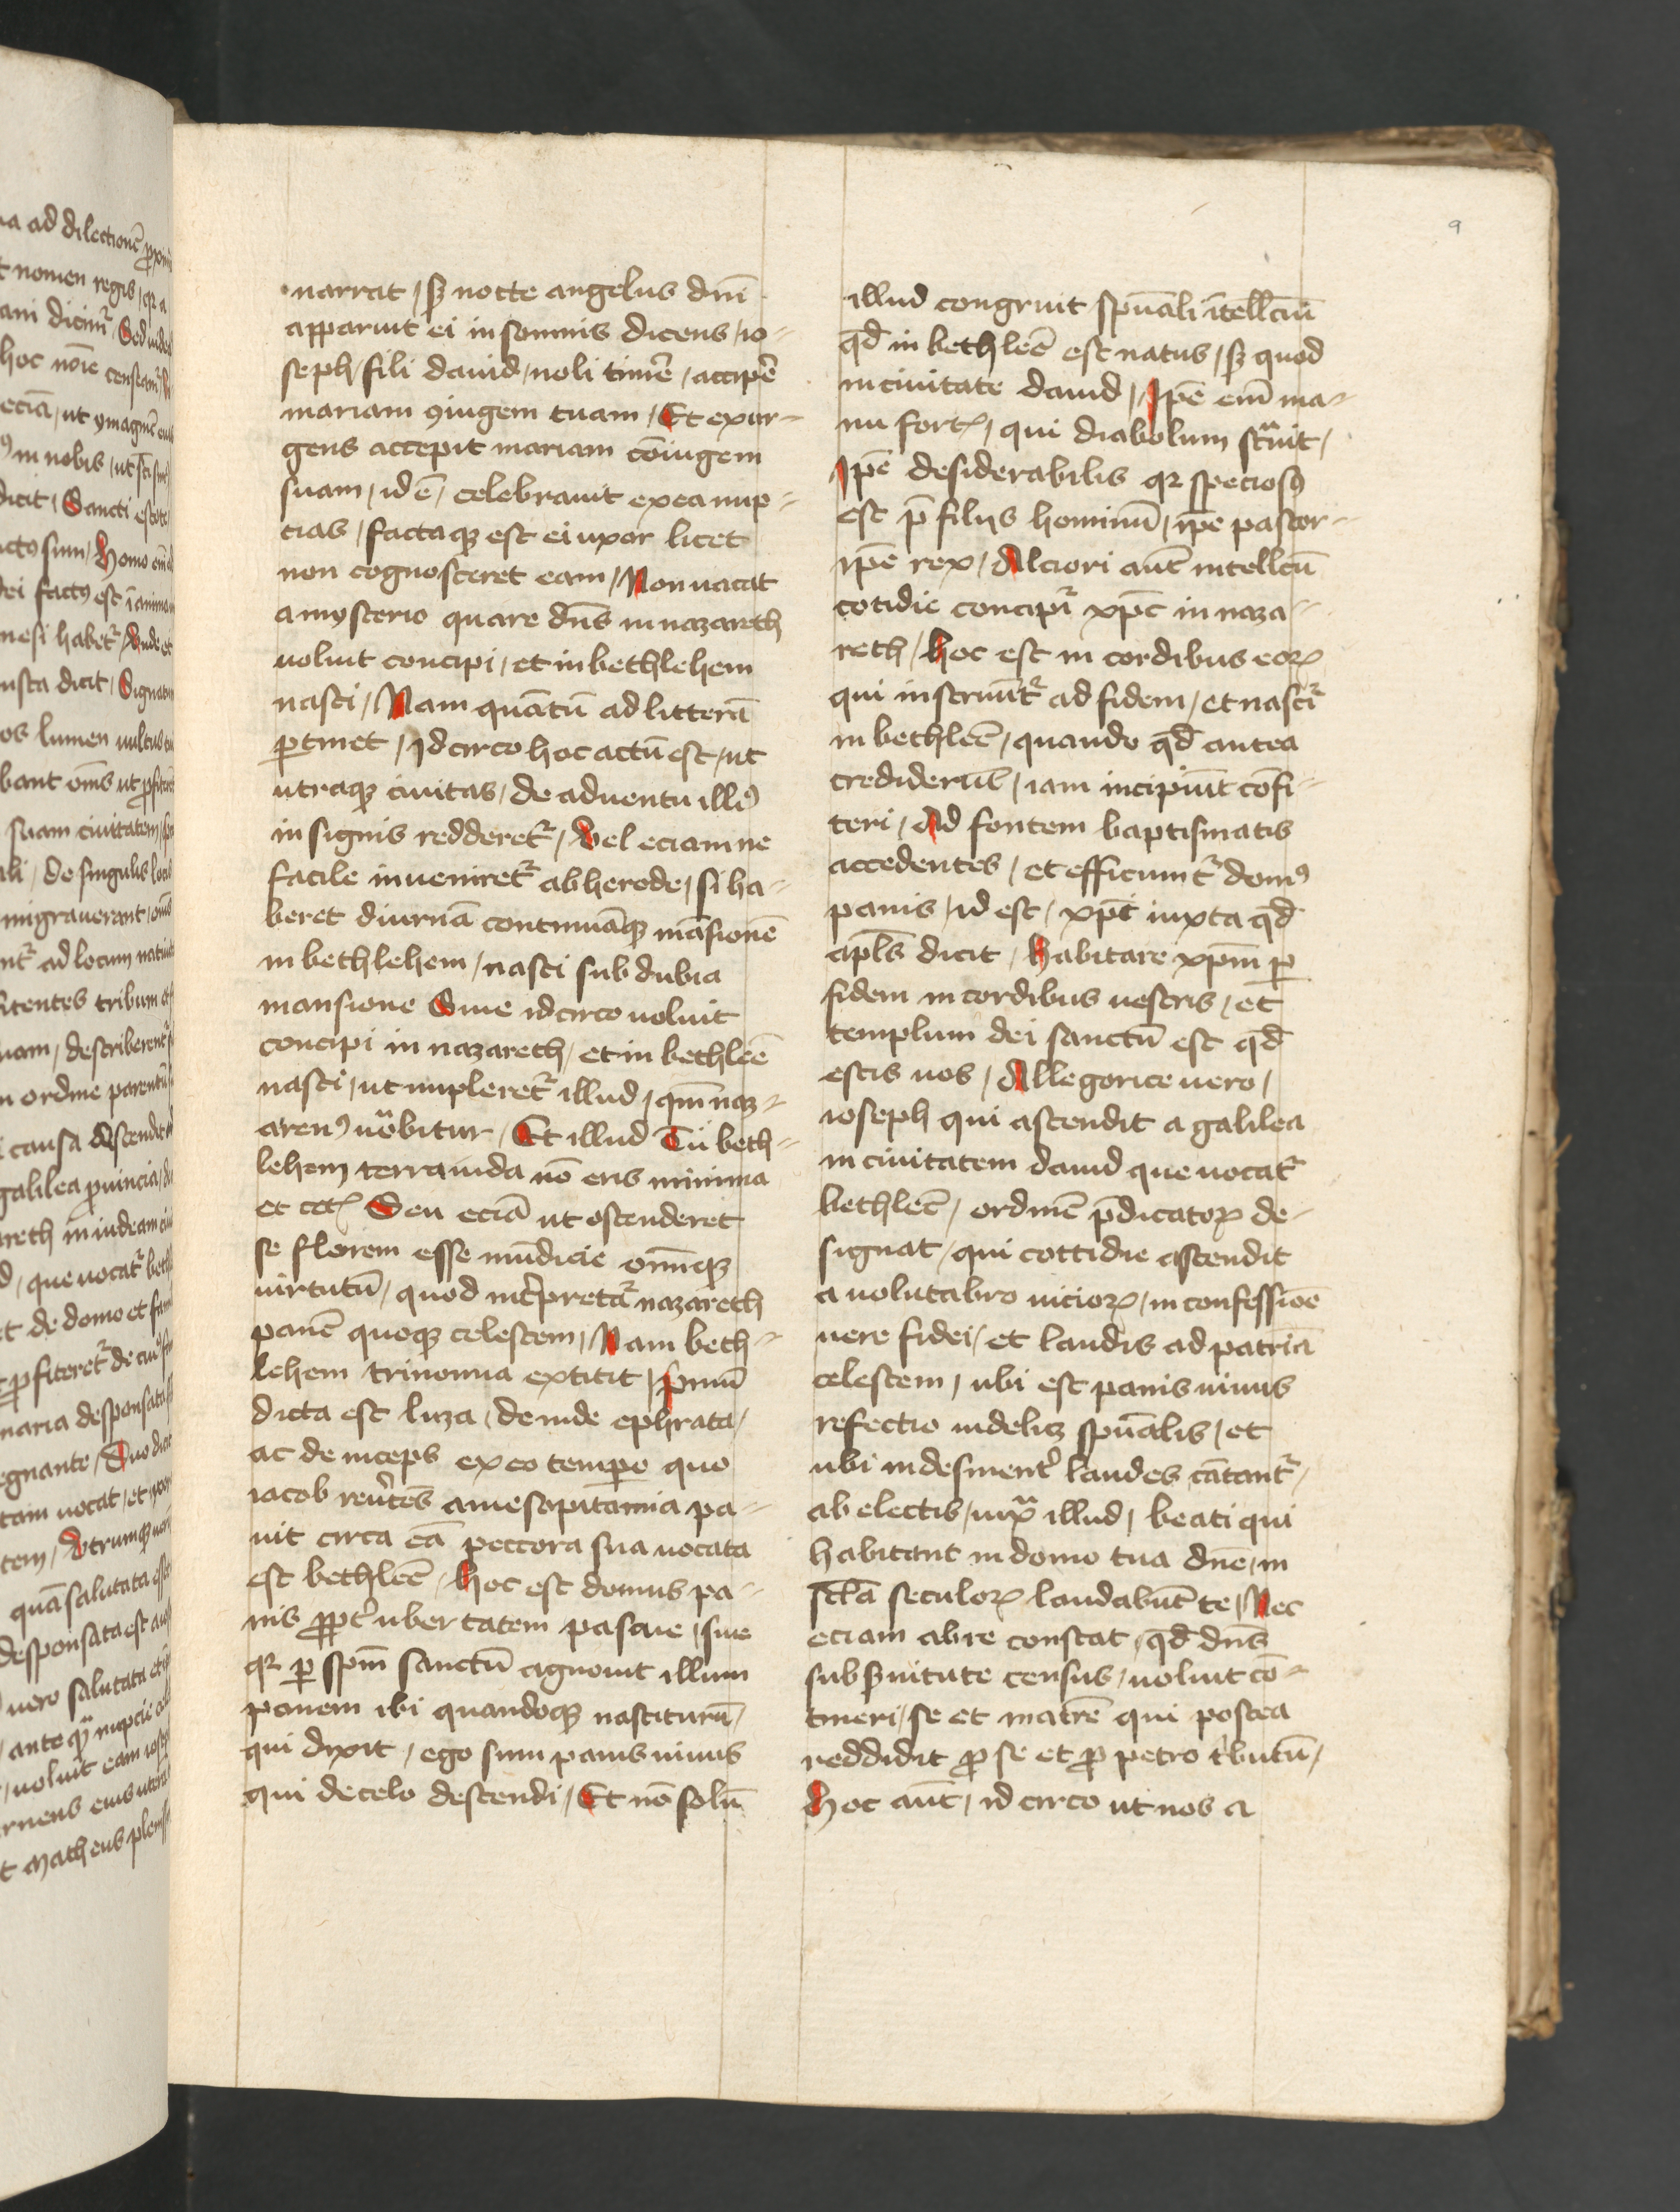 9
narrat / sꝫ nocte angelus dn̄i
apparuit ei in somnis dicens / io⸗
seph / fili dauid / noli timē̄ / accip̄e
mariam ꝯiugem tuam / Et exur⸗
gens accepit mariam cōiugem
suam / id ē / celebrauit ex ea nup⸗
cias / factaqꝫ est ei uxor licet
non cognosceret eam / Non uacat
a mysterio quare dn̄s in nazareth
uoluit concipi / et in bethlehem
nasci / Nam quātū ad litterā
ꝑtinet / Idcirco hoc actū est / ut
utraqꝫ ciuitas / de aduentu illiꝰ
insignis redderet᷑ / Vel eciam ne
facile inueniret᷑ ab herode / si ha⸗
beret diurnā continuāqꝫ māsionē
in bethlehem / nasci sub dubia
mansione Siue idcirco uoluit
concipi in nazareth / et in bethleē
nasci / ut impleret᷑ illud / qm̄ naz⸗
arenꝰ uoᷓbitur / Et illud Tu beth⸗
lehem terra iuda nō eris minima
et cetꝭ Seu eciā ut ostenderet
se florem esse mūdicie om̄iqꝫ
uirtutū / quod int̓pretat᷑ nazareth
panē quoqꝫ celestem / Nam beth⸗
lehem trinomia extitit / p̓mū
dicta est luza / deinde ephrata /
ac deinceps ex eo tempore quo
iacob reu̓tēs a mesopitamia pa⸗
uit circa eā peccora sua uocata
est bethleē / hoc est domus pa⸗
nis ꝓpt̓ ubertatem pascue / siue
qꝛ ꝑ sp̄m sanctū agnouit illum
panem ibi quandoqꝫ nasciturū /
qui dixit / ego sum panis uiuus
qui de celo descendi / Et nō solū
illud congruit spūali ītellc̄ui
qd̄ in bethleē est natus / sꝫ quod
in ciuitate dauid / Ip̄e em̄ ma⸗
nu fortꝭ / qui diabolum stᷓuit /
Ip̄e desiderabilis qꝛ speciosꝰ
est p̄ filijs hominū / ip̄e pastor⸗
ip̄e rex / Alciori aūt intellcū
cotidie concipit᷑ xp̄c in naza⸗
reth / hoc est in cordibus eoꝝ
qui instruūt᷑ ad fidem / et nascit᷑
in bethleē / quando qd̄ antea
crediderūt / iam incipiūt cōfi⸗
teri / Ad fontem baptismatis
accedentes / et efficiunt᷑ domꝰ
panis / id est / xp̄i iuxta qd̄
apl̄s dicit / habitare xp̄m ꝑ
fidem in cordibus uestris / et
templum dei sanctū est qd̄
estis uos / Allegorice uero /
ioseph qui ascendit a galilea
in ciuitatem dauid que uocat᷑
bethleē / ordinē p̄dicatoꝝ de⸗
signat / qui cottidie ascendit
a uolutabro uicioꝝ / in confessiōē
uere fidei / et laudis ad patriā
celestem / ubi est panis uiuus
refectio uidelicꝫ spūalis / et
ubi indesinent̓ laudes cātant᷑ /
ab electis / iuxᷓ illud / beati qui
habitant in domo tua dn̄e / in
scl̄a seculoꝝ laudabūt te / Nec
eciam ab re constat / qd̄ dn̄s
sub s̓uitute census / uoluit cō⸗
tineri / se et matrē qui postea
reddidit ꝓ se et ꝓ petro t̓butū /
Hoc aūt / idcirco ut nos a